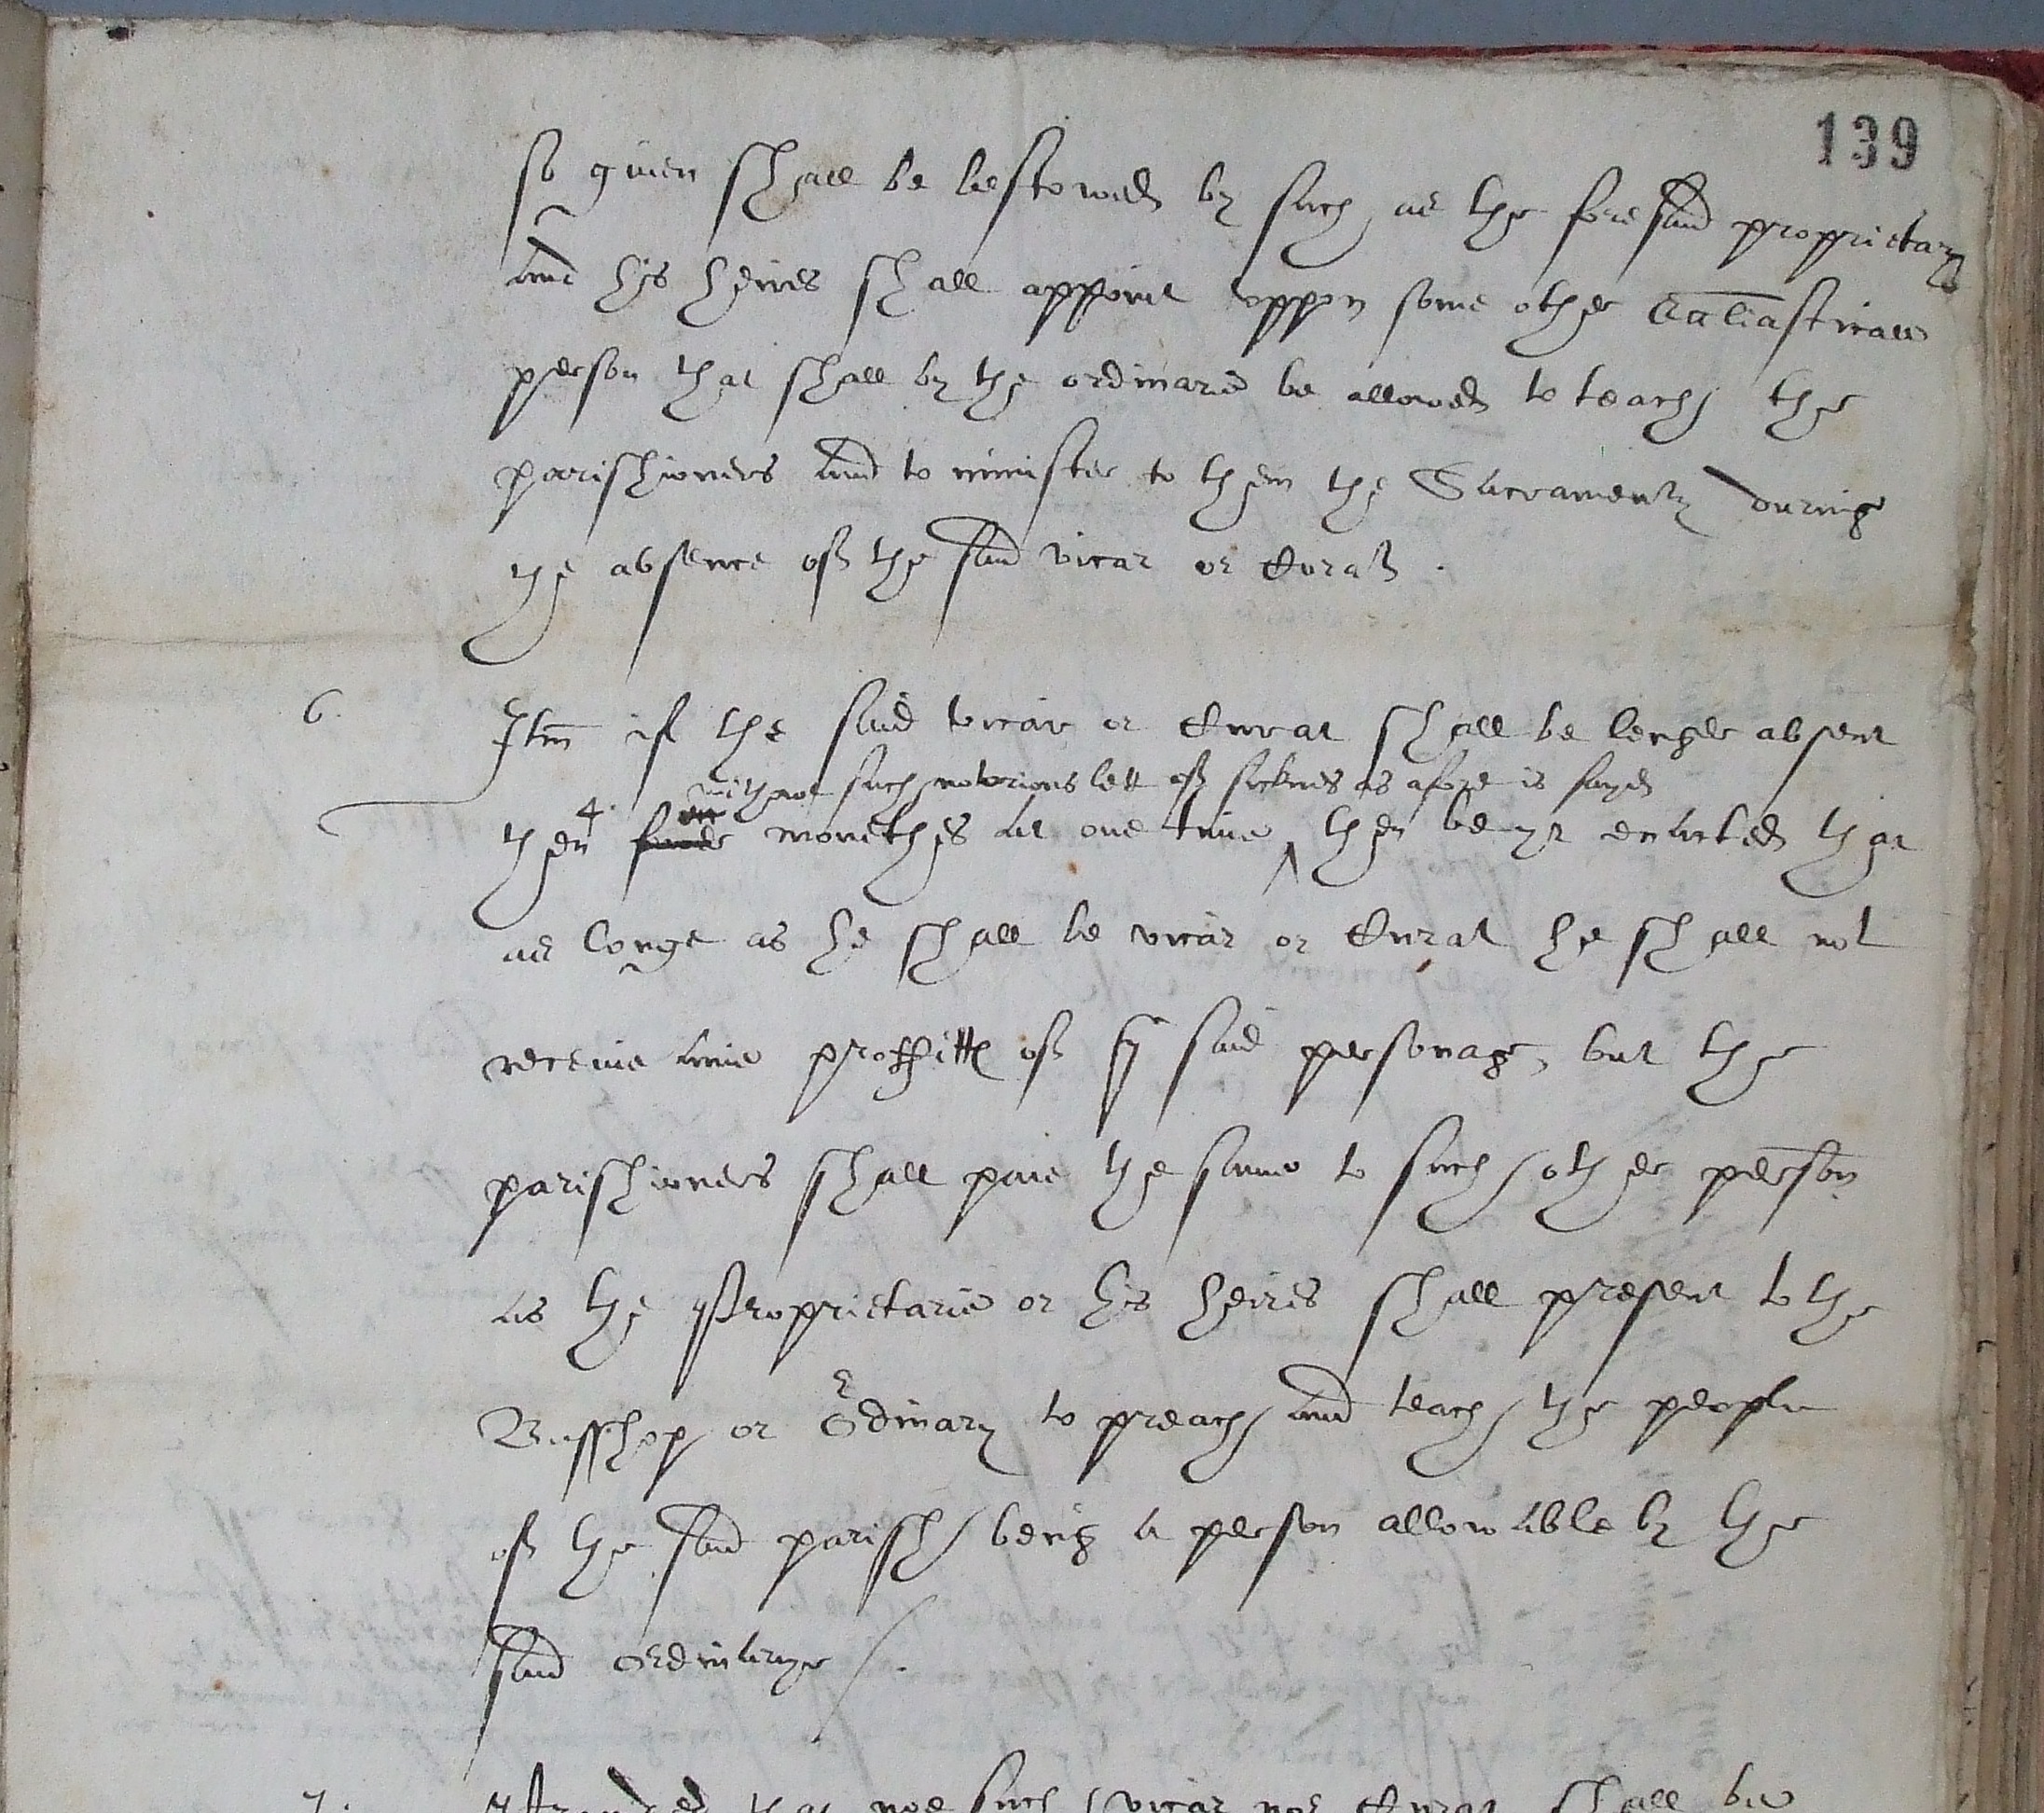 139
so giuen shall be bestowed by such as the foresaid proprietary
and his heires shall appoint vppon some other Eccliasticall
person that shall by the ordinarie be allowed to teach the
parishioners and to minister to them the Sacraments during
the absence off the said vicar or Curat .
6. Itm if the said vicar or Curat shall be lenger absent
without such notorious lett off sicknes as afore is sayed
4.
then moneths at one time ^ then be yt enacted that
as longe as he shall be vicar or Curat he shall not
receiue anie proffitts off ye said personage, but the
parishioners shall paie the same to such other person
as the Proprietarie or his heires shall present to the
Busshop or Ordinary to preach and teach the people
off the said parish being a person allowable by the
said ordinarye /.
7. that noe such vicar nor Curat shall be